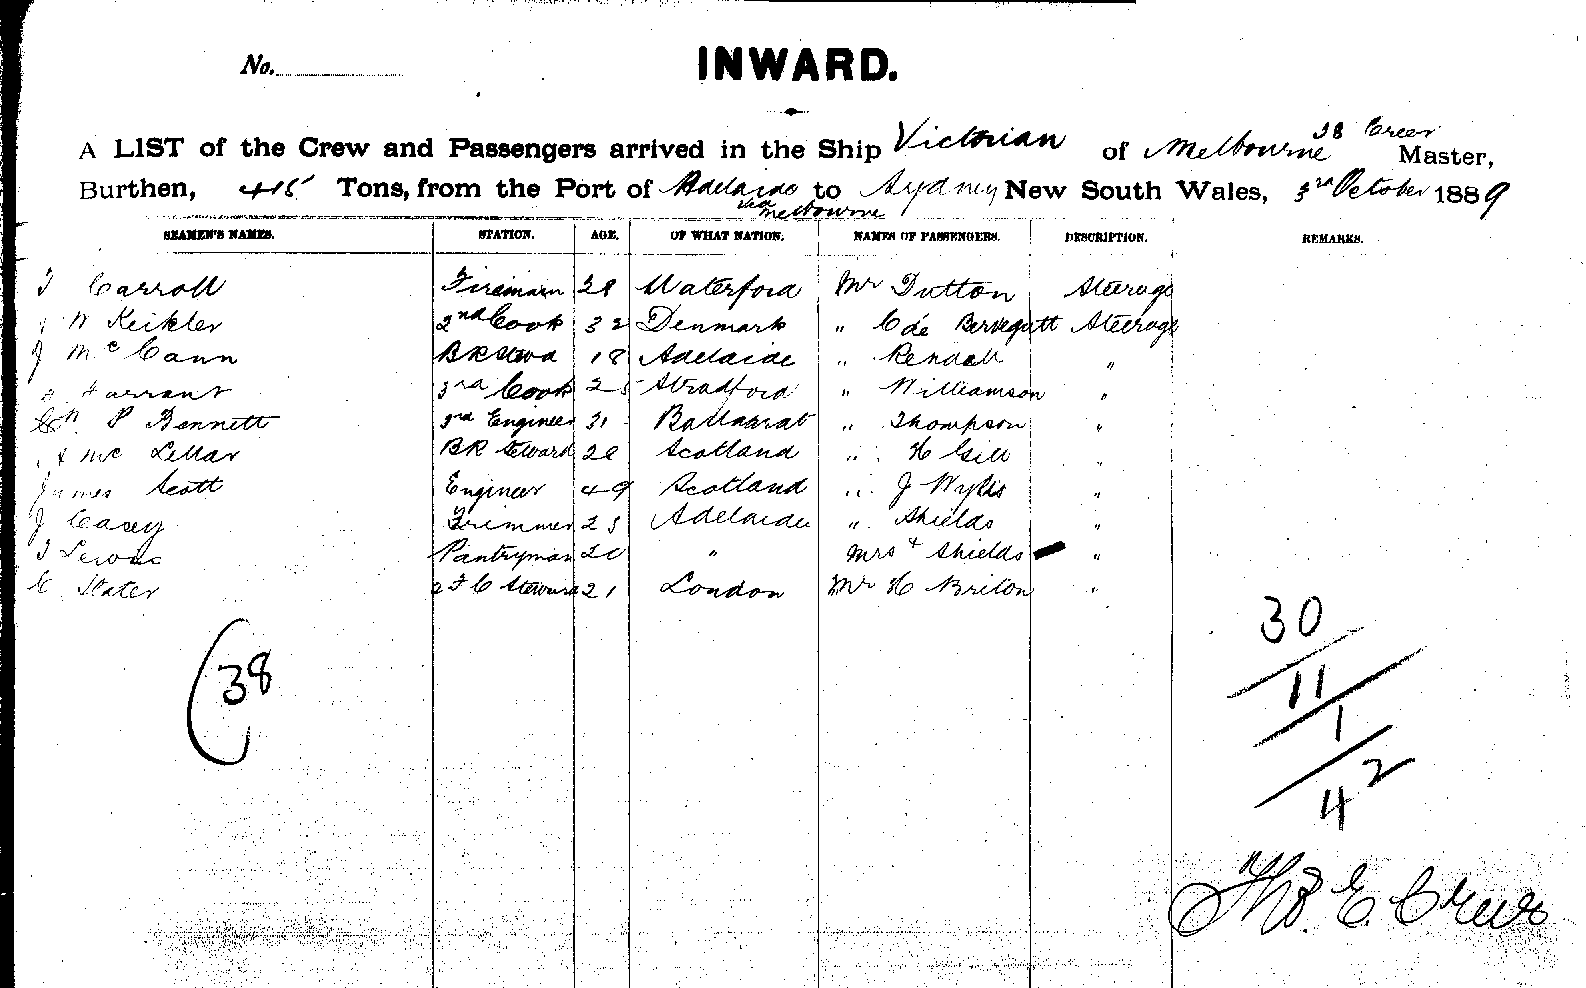 No.
INWARD.
A LIST of the Crew and Passengers arrived in the Ship Victorian of Melbourne Creer Master,
Burthen, Tons, from the Port of Adelaide to Sydney New South Wales, 3rd October 1889
via Melbourne
SEAMEN'S NAMES. STATION. AGE. OF WHAT NATION. NAMES OF PASSENGERS. DESCRIPTION. REMARKS.
Carroll Fireman 28 Waterford Mr Dutton Steerage
W Keikler 2nd Cook 32 Denmark " C de Steerage
J McCann BR Stewd 18 Adelaide " Rendell "
Farrant 3rd Cook 25 Stradford " Williamson "
P Bennett 3rd Engineer 31 Ballaarat " Thompson "
Mc Lellar BR Steward 28 Scotland " H Gill "
James Scott Engineer 49 Scotland " J Wyllis "
J Casey Trimmer 25 Adelaide " Shields "
Pantryman 20 " Mrs + Shields "
C Slater 2 F C Steward 21 London Mr H Briton "
38
30
11
1
42
Thos. E. Creer